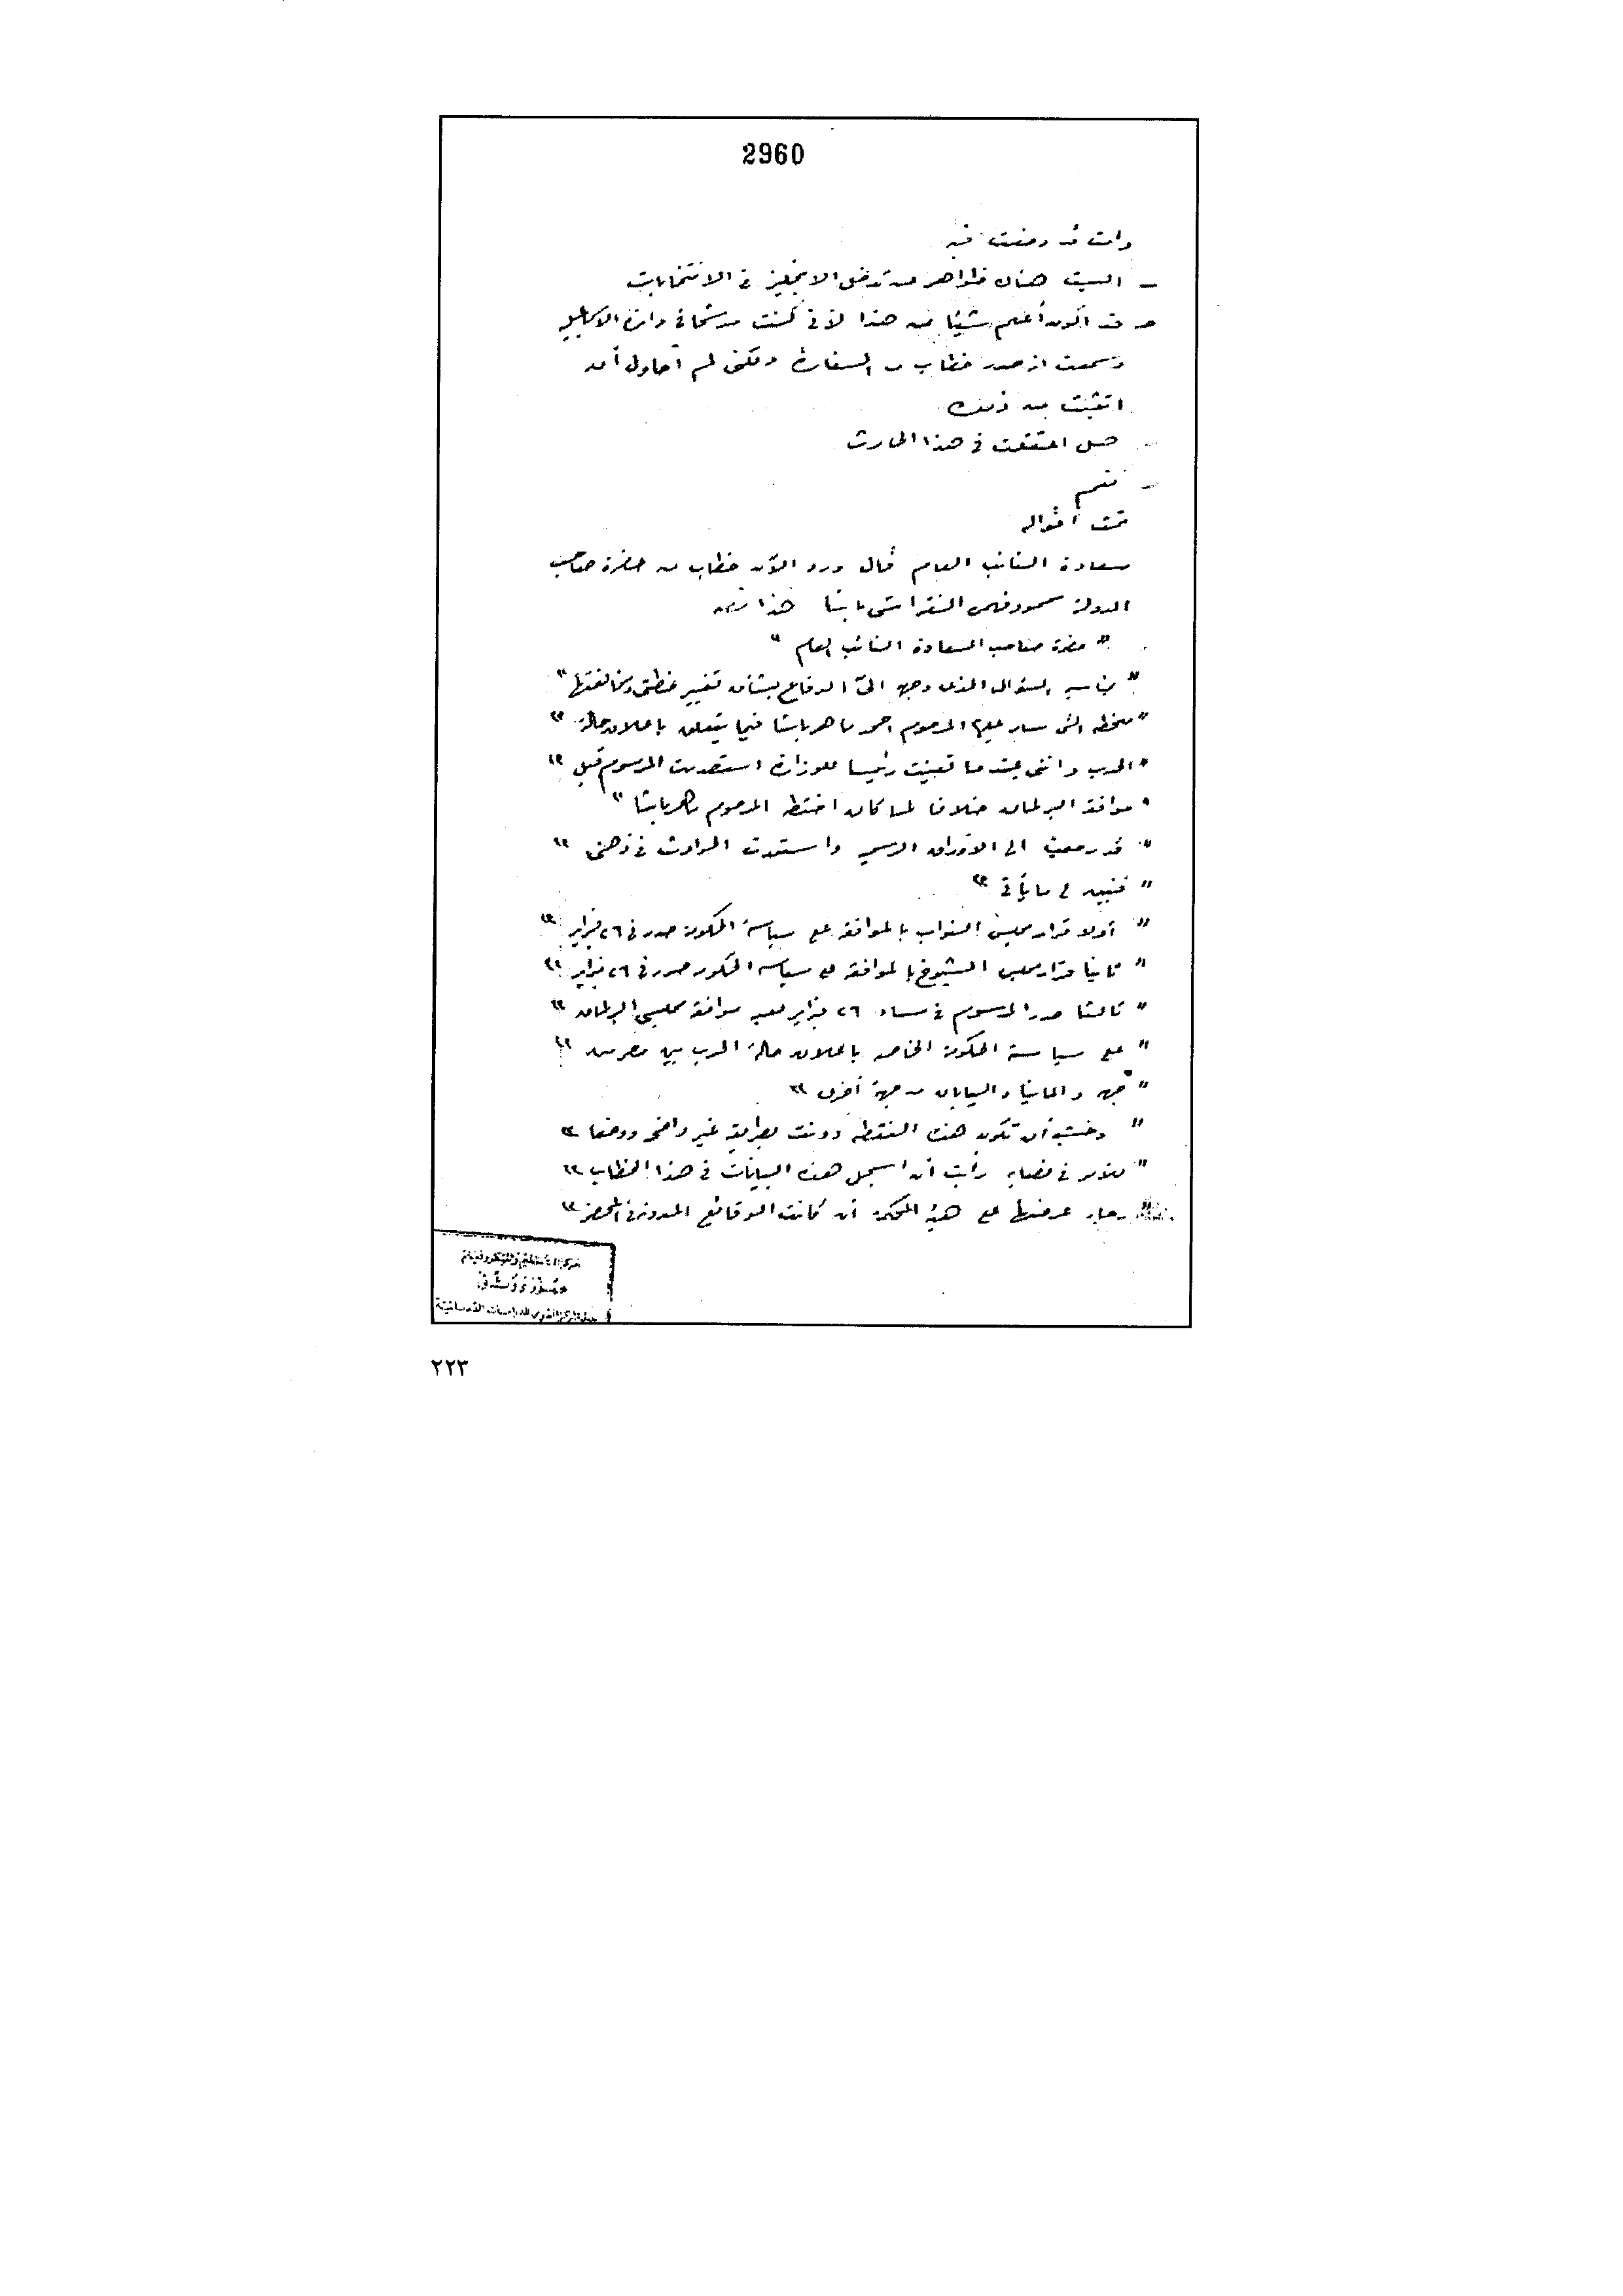 2960
وانت قد رفعت فيه
– اليست هناك ظواهر من تدخل الانجليز في الانتخابات
قد اكون أعلم شيئا من هذا لأني كنت مرشحا في دائرة الاسماعيلية
وسمعت انه صدر خطاب من السفارة ولكني لم أحاول أن
اتثبت من ذلك
– هل اعتقلت في هذا الحادث
– نعم
تمت أقواله
سعادة النائب العام قال ورد الآن خطاب من حضرة صاحب
الدولة محمود فهمى النقراشى باشا هذا نصه
" حضرة صاحب السعادة النائب العام "
" السؤال الذى وجه الىّ الدفاع بشأن تغيير خطتى ومخالفتها "
" للخطه التى سار عليها المرحوم احمد ماهر باشا فيما يتعلق باعلان حالة "
" الحرب وانى عندما تعينت رئيسا للوزارة استصدرت المرسوم قبل "
" موافقة البرلمان خلافا لما كان اختطه المرحوم ماهر باشا "
" قد رجعت الى الاوراق الرسمية واستعدت الحوادث فى ذهنى "
" فتبين لى ما يأتى "
" أولا قرار مجلس النواب بالموافقة على سياسة الحكومة صدر فى ٢٦ فبراير "
" ثانيا قرار مجلس الشيوخ بالموافقة على سياسة الحكومة صدر فى ٢٦ فبراير "
" ثالثا صدر المرسوم فى مساء ٢٦ فبراير بعد موافقة مجلسى البرلمان "
" على سياسة الحكومة الخاصة باعلان حالة الحرب بين مصر من "
" جهة والمانيا واليابان من جهة أخرى "
" وخشية أن تكون هذه النقطه دونت بطريقة غير واضحة ووضعا "
" للأمر فى نصابه رأيت أن اسجل هذه البيانات فى هذا الخطاب "
" رجاء عرضها على هيئة المحكمة ان كانت الوقائع المدونة فى المحضر "
٢٢٣